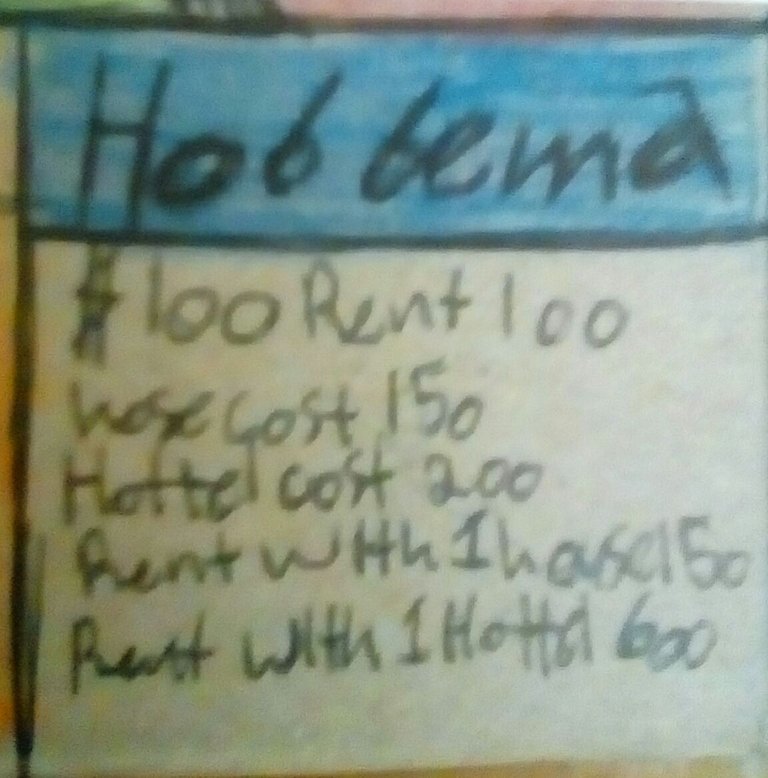 Hobbema
$100 Rent 100
hose cost 150
Hottel cost 200
Rent with 1 hose 150
Rent with 1 Hottel 600